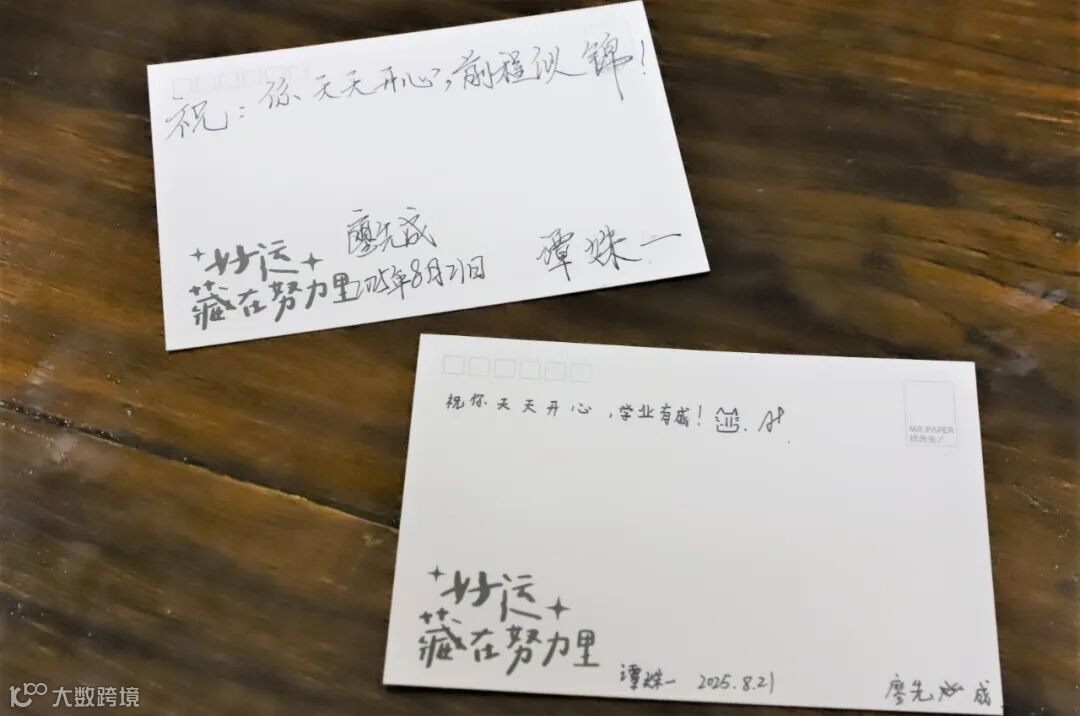 祝:你天天开心,前程似锦!
廖先成
谭姝一
2025年8月21日
好运
藏在努力里
祝你天天开心,学业有成!
MR. PAPER
纸先生/
好运
藏在努力里
谭姝一 2025.8.21
廖先成
大数跨境